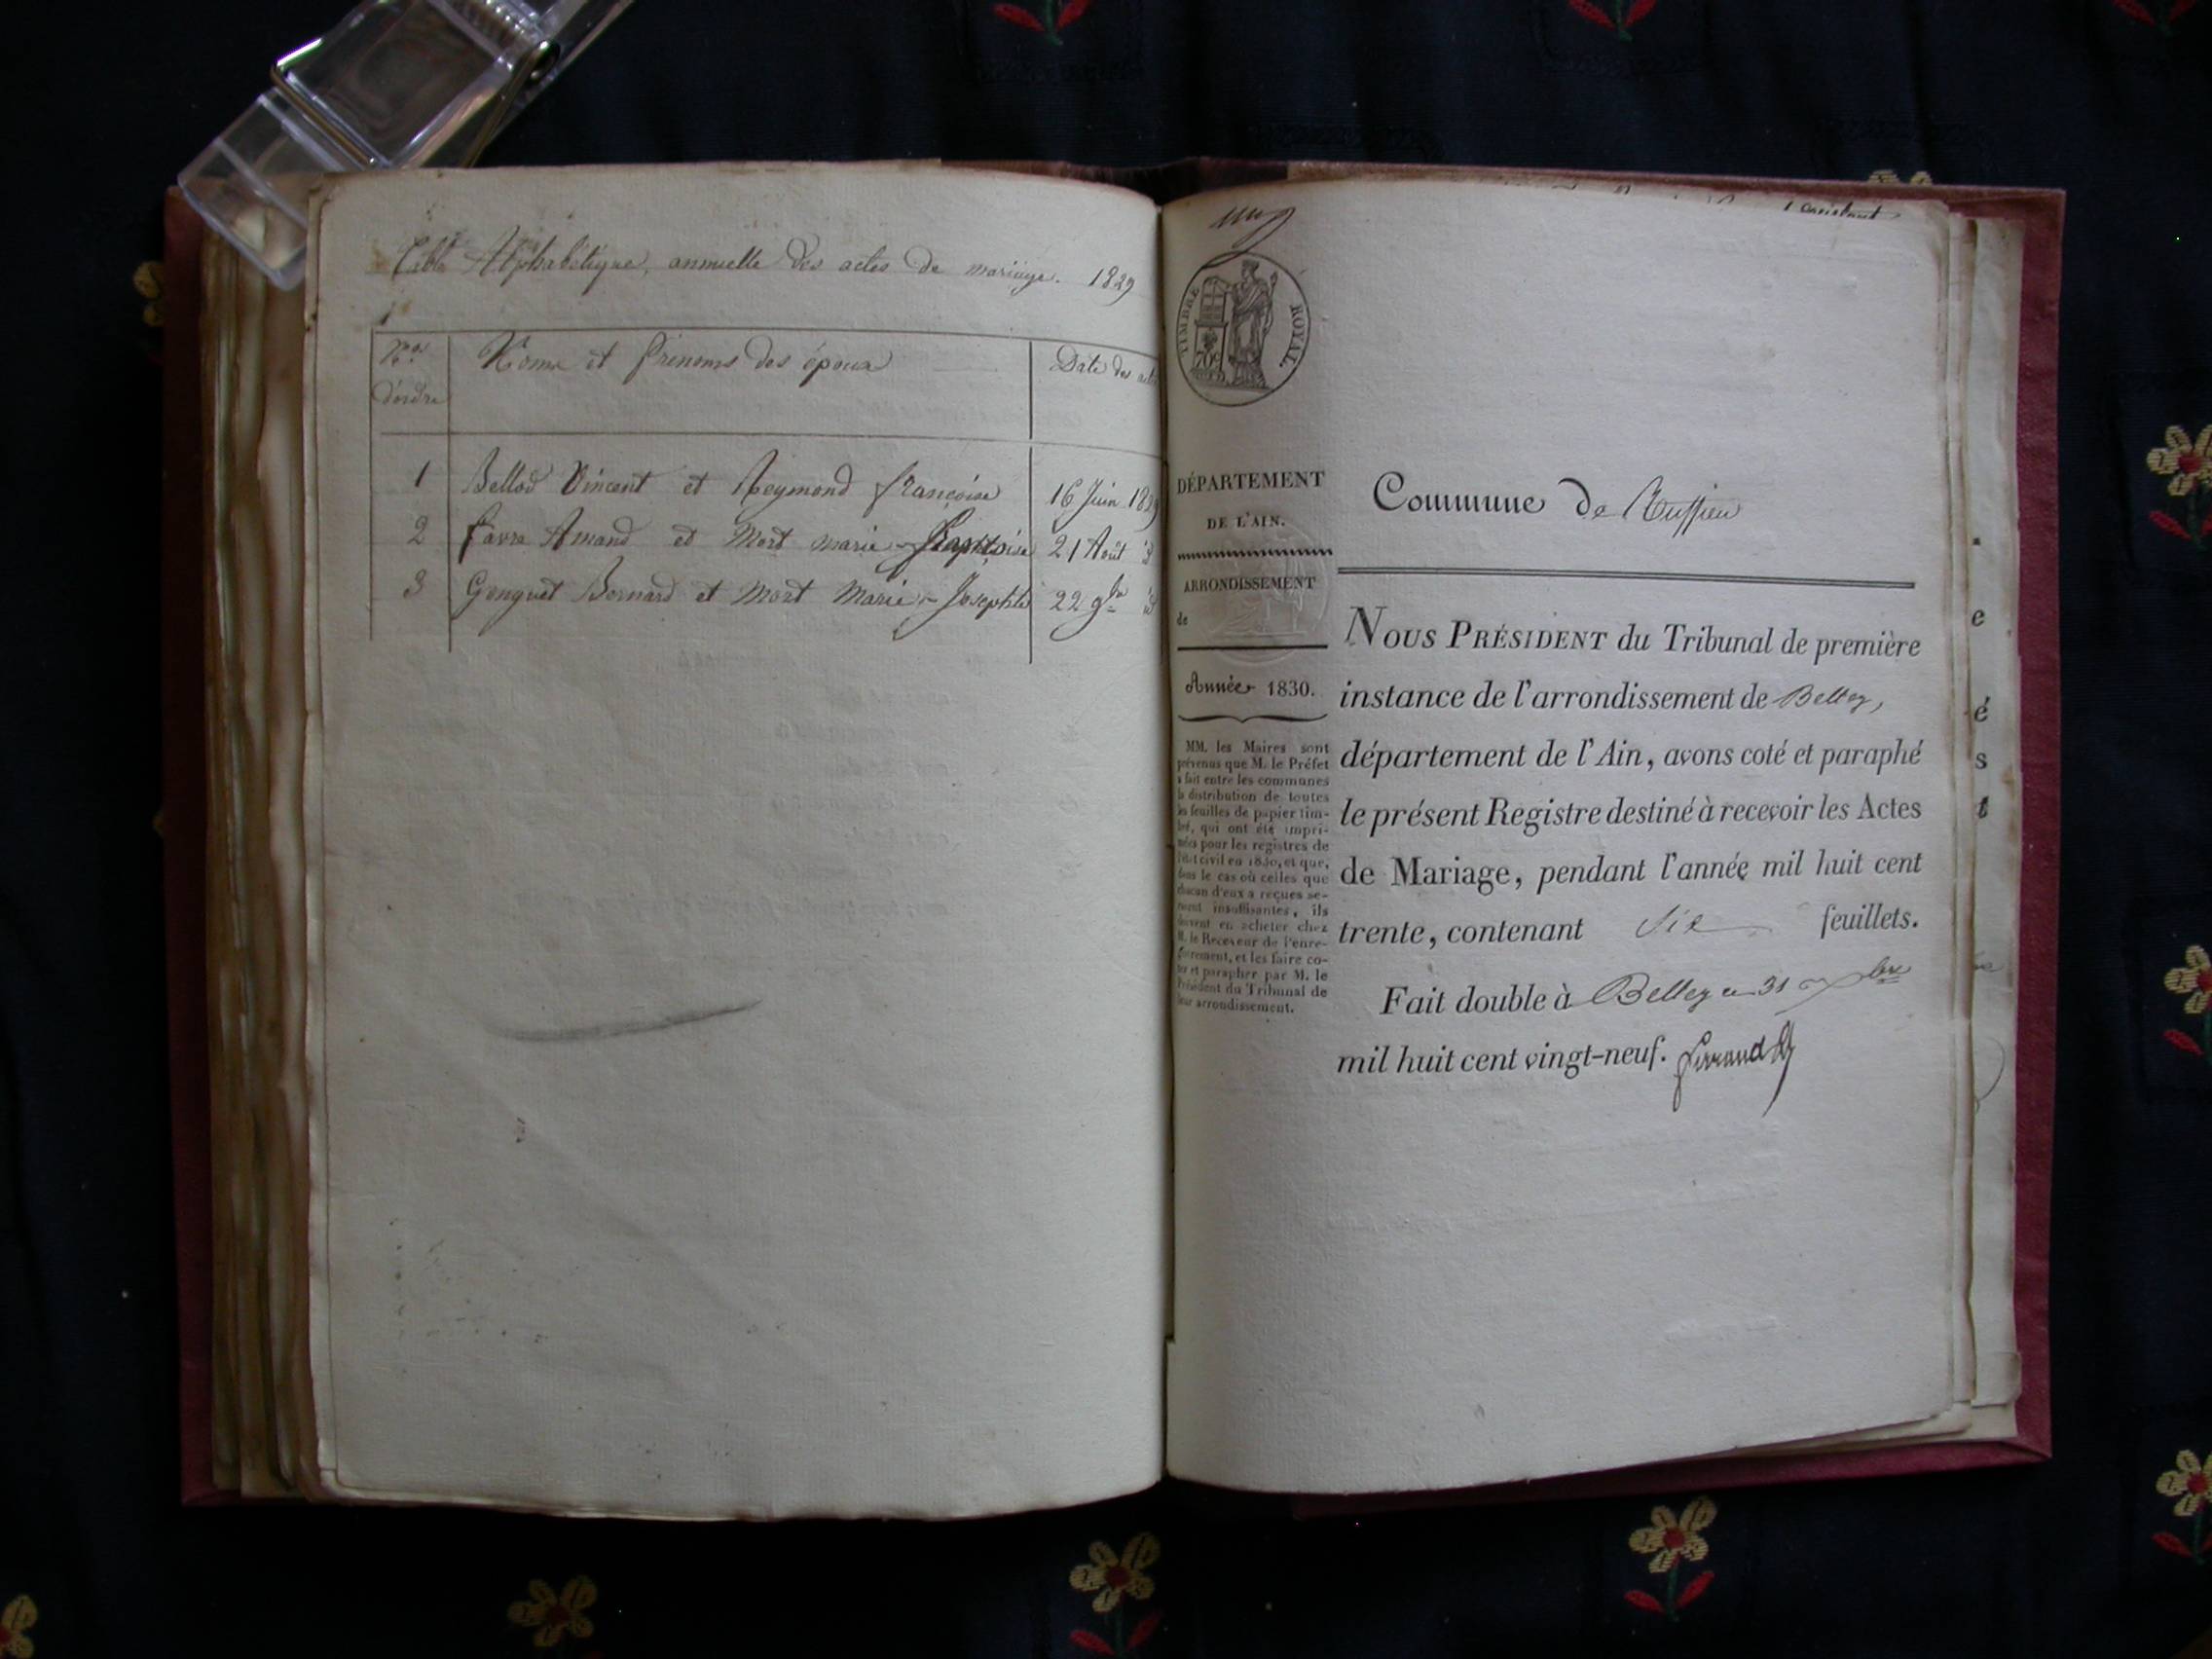 Table Alphabétique, annuelle des actes de mariage. 1829
Nos
d'ordre
Noms et prénoms des époux
Date des actes
1 Bellod Vincent et Reymond françoise 16 Juin 1829
2 favre Amand et Mort marie - 21 Août id
3 Gonguet Bernard et Mort Marie - Josephte 22 9bre id
un
TIMBRE ROYAL
70c
DÉPARTEMENT
DE L'AIN.
ARRONDISSEMENT
de
Année 1830.
MM. les Maires sont
prévenus que M. le Préfet
a fait entre les communes
la distribution de toutes
les feuilles de papier tim-
bré, qui ont été impri-
mées pour les registres de
l'état civil en 1830, et que,
dans le cas où celles que
chacun d'eux a reçues se-
raient insuffisantes, ils
doivent en acheter chez
M. le Receveur de l'enre-
gistrement, et les faire co-
ter et parapher par M. le
Président du Tribunal de
leur arrondissement.
Commune de Ruffieu
NOUS PRÉSIDENT du Tribunal de première
instance de l'arrondissement de Belley,
département de l'Ain, avons coté et paraphé
le présent Registre destiné à recevoir les Actes
de Mariage, pendant l'année mil huit cent
trente, contenant Six feuillets.
Fait double à Belley ce 31 xbre
mil huit cent vingt-neuf.
e
é
s
t